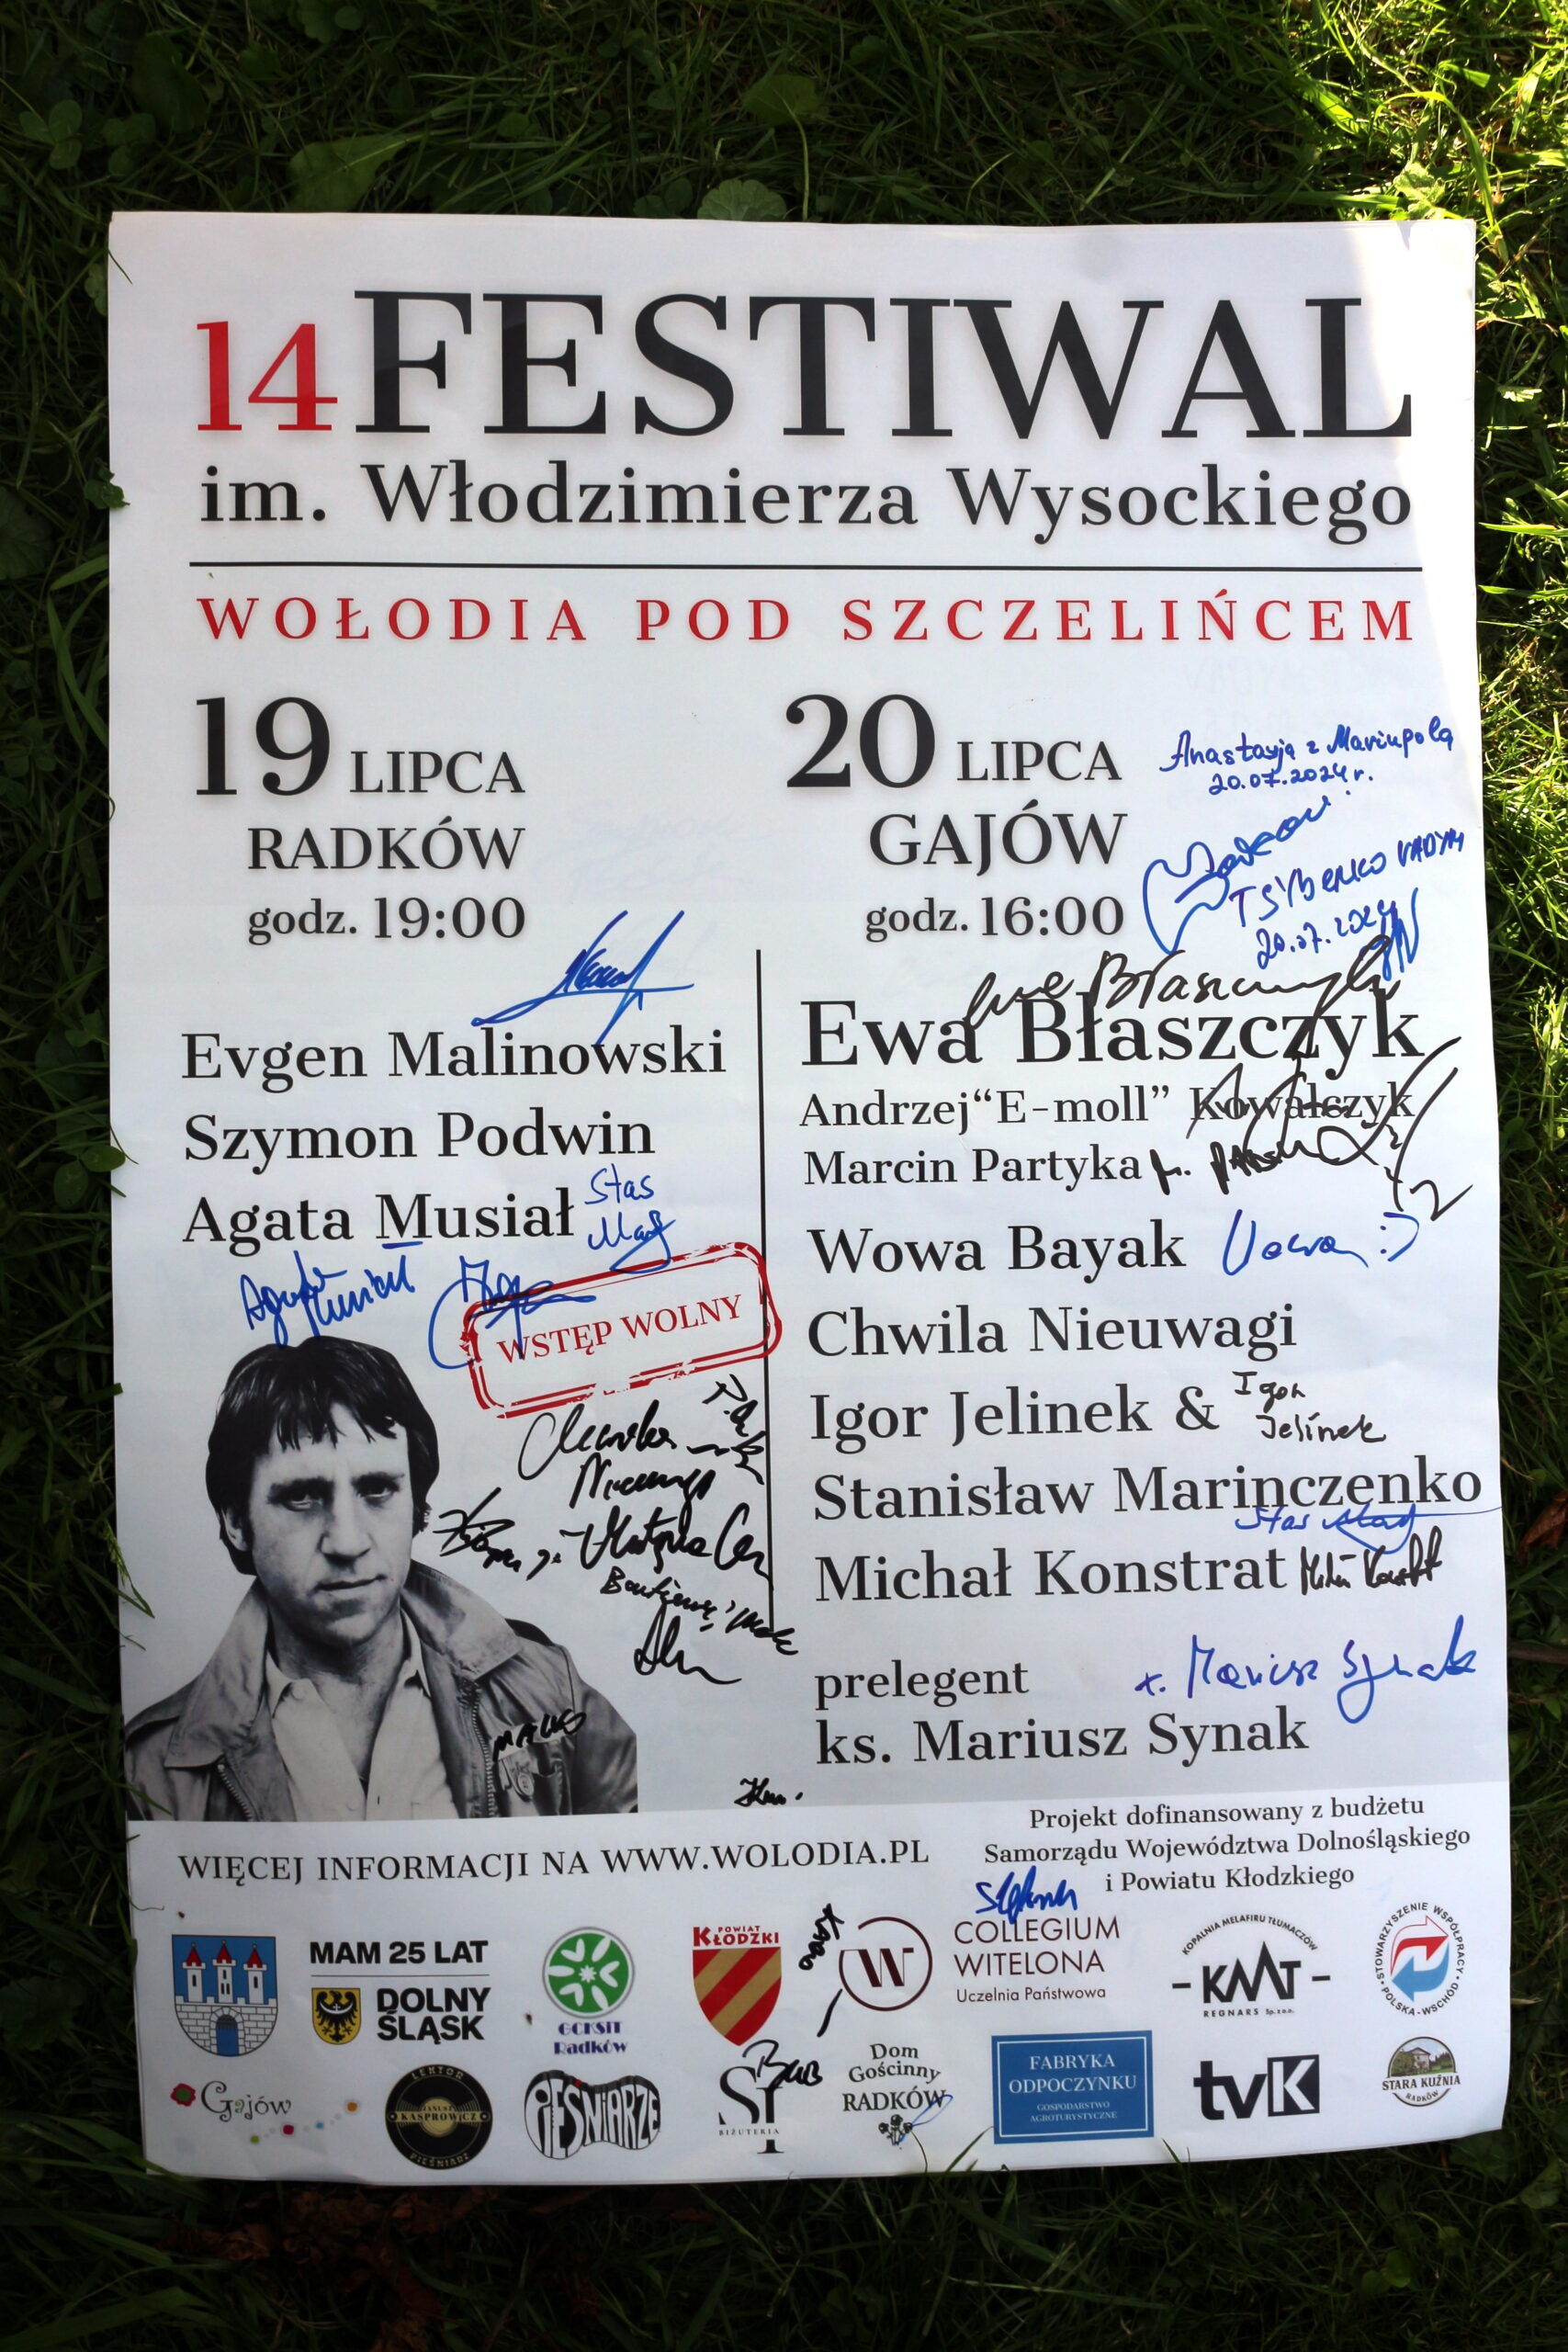 14 FESTIWAL
im. Włodzimierza Wysockiego
WOŁODIA POD SZCZELIŃCEM
19 LIPCA
RADKÓW
godz. 19:00
Evgen Malinowski
Szymon Podwin
Agata Musiał
Stas
Agata
Musiał
WSTĘP WOLNY
20 LIPCA
GAJÓW
godz. 16:00
Anastasja z Mariupola
20.07.2024 r.
TSYBENKO VADYM
20.07.2024
Ewa Błaszczyk
Ewa Błaszczyk
Andrzej “E-moll” Kowalczyk
Marcin Partyka
Wowa Bayak
Vova :)
Chwila Nieuwagi
Igor Jelinek &
Igor
Jelinek
Stanisław Marinczenko
Stas
Michał Konstrat
prelegent
x. Mariusz Synak
ks. Mariusz Synak
Chwila
Nieuwagi
WIĘCEJ INFORMACJI NA WWW.WOLODIA.PL
Projekt dofinansowany z budżetu
Samorządu Województwa Dolnośląskiego
i Powiatu Kłodzkiego
MAM 25 LAT
DOLNY
ŚLĄSK
GCKSIT
Radków
POWIAT
KŁODZKI
W
COLLEGIUM
WITELONA
Uczelnia Państwowa
KOPALNIA MELAFIRU TŁUMACZÓW
-KMT-
REGNARS Sp. z o.o.
STOWARZYSZENIE WSPÓŁPRACY
POLSKA-WSCHÓD
Gajów
LEKTOR
JANUSZ
KASPROWICZ
PIEŚNIARZ
PIEŚNIARZE
BIŻUTERIA
Dom
Gościnny
RADKÓW
FABRYKA
ODPOCZYNKU
GOSPODARSTWO
AGROTURYSTYCZNE
tvK
STARA KUŹNIA
RADKÓW